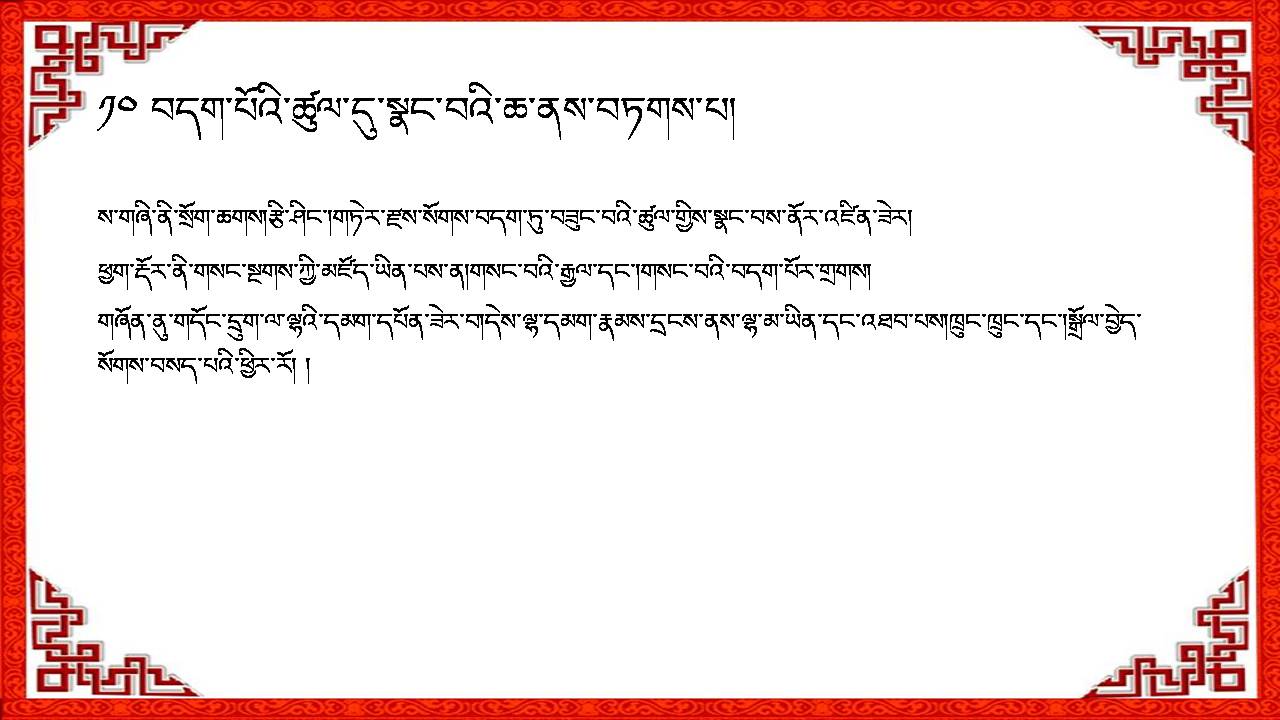 ༡༠ བདག་པོའི་ཚུལ་དུ་སྣང་བའི་ཆ་ནས་བཏགས་པ།
ས་གཞི་ནི་སྲོག་ཆགས།རྩི་ཤིང་།གཏེར་རྫས་སོགས་བདག་ཏུ་བཟུང་བའི་ཚུལ་གྱིས་སྣང་བས་ནོར་འཛིན་ཟེར།
ཕྱག་རྡོར་ནི་གསང་སྔགས་ཀྱི་མཛོད་ཡིན་པས་ན།གསང་བའི་རྒྱལ་དང་།གསང་བའི་བདག་པོར་གྲགས།
གཞོན་ནུ་གདོང་དྲུག་ལ་ལྷའི་དམག་དཔོན་ཟེར་བ།དེས་ལྷ་དམག་རྣམས་དྲངས་ནས་ལྷ་མ་ཡིན་དང་འཐབ་པས།ཁྲུང་ཁྲུང་དང་།སྒྲོལ་བྱེད་
སོགས་བསད་པའི་ཕྱིར་རོ། །